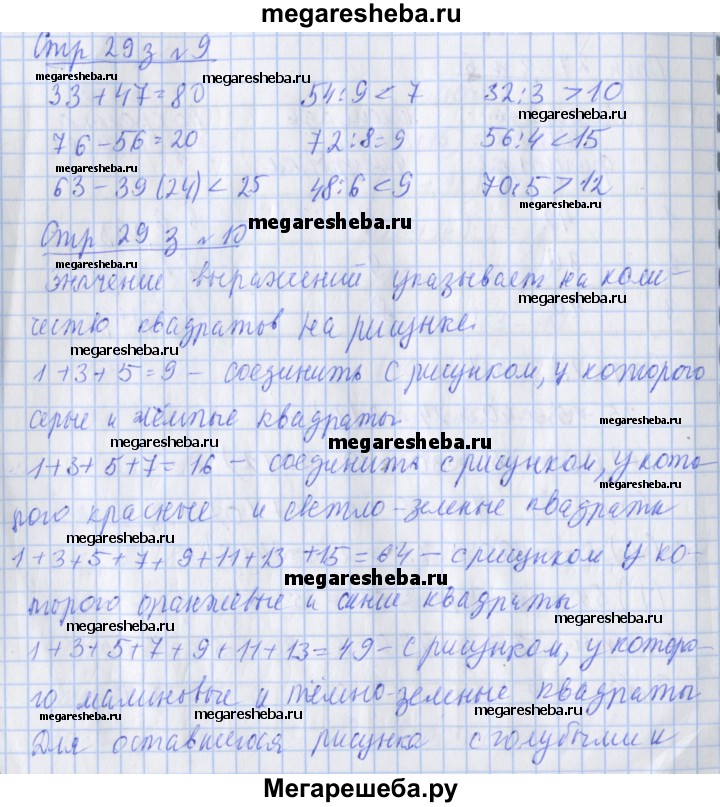 megaresheba.ru
Стр 29 з №9
megaresheba.ru megaresheba.ru megaresheba.ru
33 + 47 = 80 54 : 9 < 7 32 : 3 > 10
76 - 56 = 20 72 : 8 = 9 56 : 4 < 15
megaresheba.ru megaresheba.ru
63 - 39 (24) < 25 48 : 6 < 9 70 : 5 > 12
megaresheba.ru
Стр 29 з №10
megaresheba.ru
значение выражений указывает на коли-
megaresheba.ru
чество квадратов на рисунке.
megaresheba.ru
1 + 3 + 5 = 9 - соединить с рисунком, у которого
megaresheba.ru
серые и тёмные квадраты
megaresheba.ru megaresheba.ru
1 + 3 + 5 + 7 = 16 - соединить с рисунком, у кото-
megaresheba.ru
рого красные и светло-зеленые квадраты
megaresheba.ru
1 + 3 + 5 + 7 + 9 + 11 + 13 + 15 = 64 - с рисунком у ко-
megaresheba.ru
торого оранжевые и синие квадраты
megaresheba.ru megaresheba.ru
1 + 3 + 5 + 7 + 9 + 11 + 13 = 49 - с рисунком, у которо-
megaresheba.ru
го малиновые и тёмно-зеленые квадраты
megaresheba.ru megaresheba.ru megaresheba.ru
Для оставшегося рисунка с голубыми и
Мегарешеба.ру